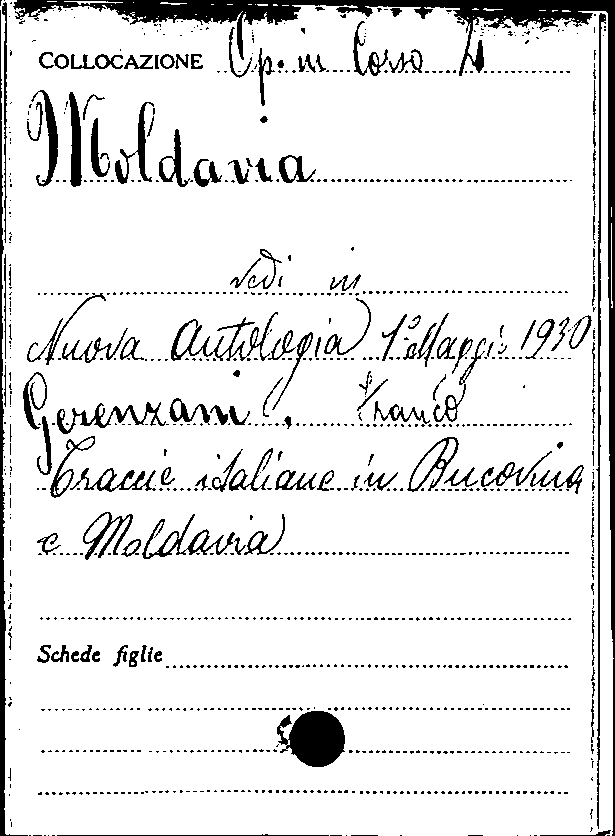 COLLOCAZIONE Op. in Corso 4
Moldavia
vedi in
Nuova Antologia 1° Maggio 1930
Gerenzani, Franco
Traccie italiane in Bucovina
e Moldavia
Schede figlie